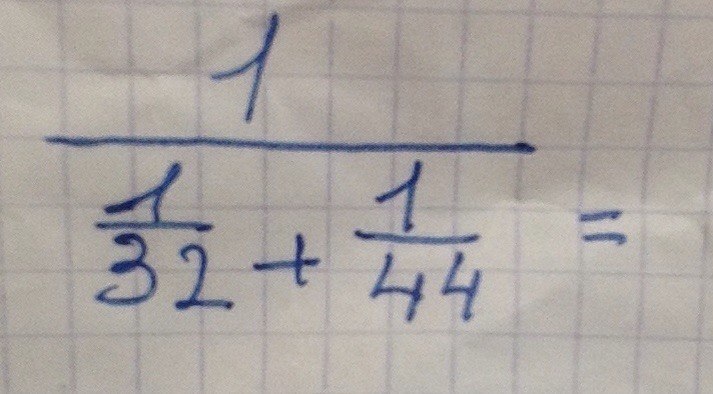 1
1/32 + 1/44 =